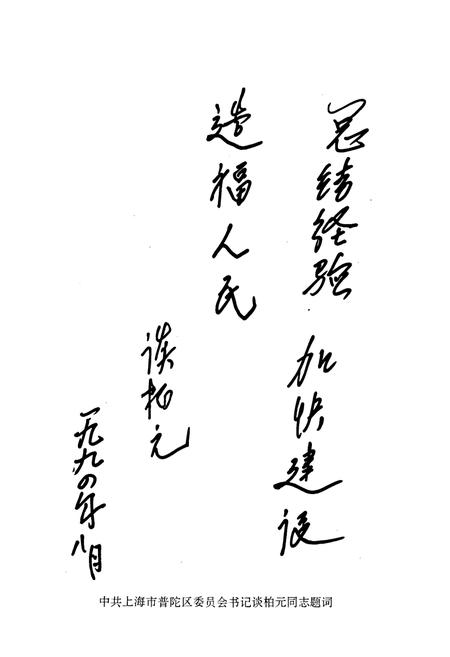 总结经验 加快建设
造福人民
谈柏元
一九九四年八月
中共上海市普陀区委员会书记谈柏元同志题词